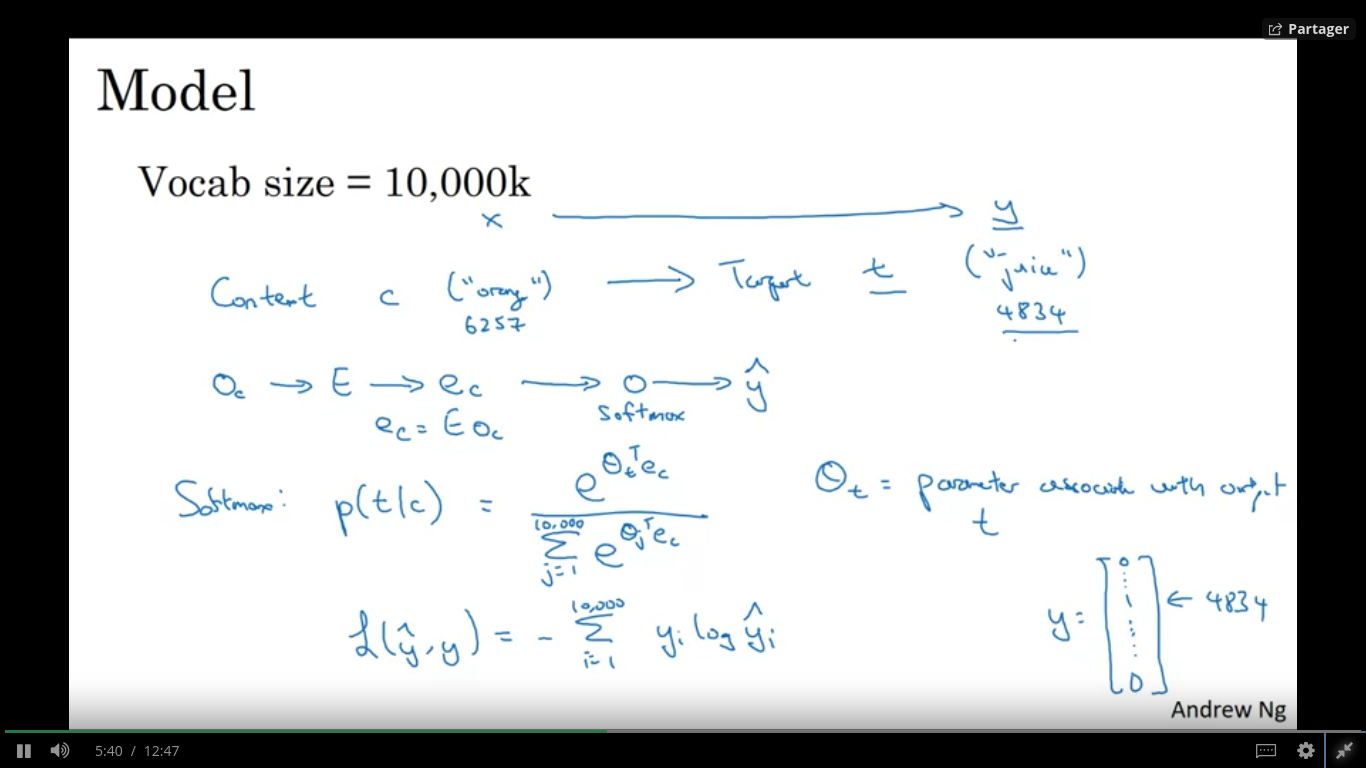 Partager
Model
Vocab size = 10,000k
x → y
Content c ("orange") → Target t ("juice")
6257 4834
O_c → E → e_c → o → ŷ
softmax
e_c = E o_c
Softmax: p(t|c) = e^{θ_t^T e_c} / Σ_{j=1}^{10,000} e^{θ_j^T e_c}
θ_t = parameter associate with output t
L(ŷ, y) = - Σ_{i=1}^{10,000} y_i log ŷ_i
y = [0 ⋮ 1 ⋮ 0] ← 4834
Andrew Ng
5:40 / 12:47